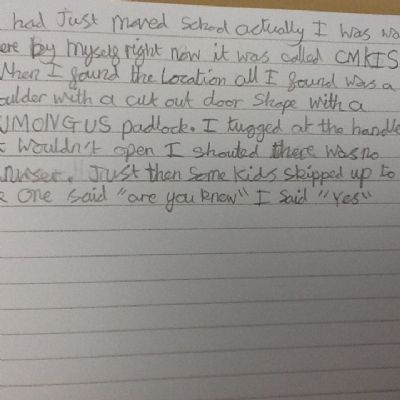 had Just moved school actually I was
by myself right now it was called CMKIS
When I found the location all I found was a
oulder with a cut out door shape with a
UMONGUS padlock. I tugged at the handle
wouldn't open I shouted there was no
Just then some kids skipped up to
one said "are you knew" I said "yes"